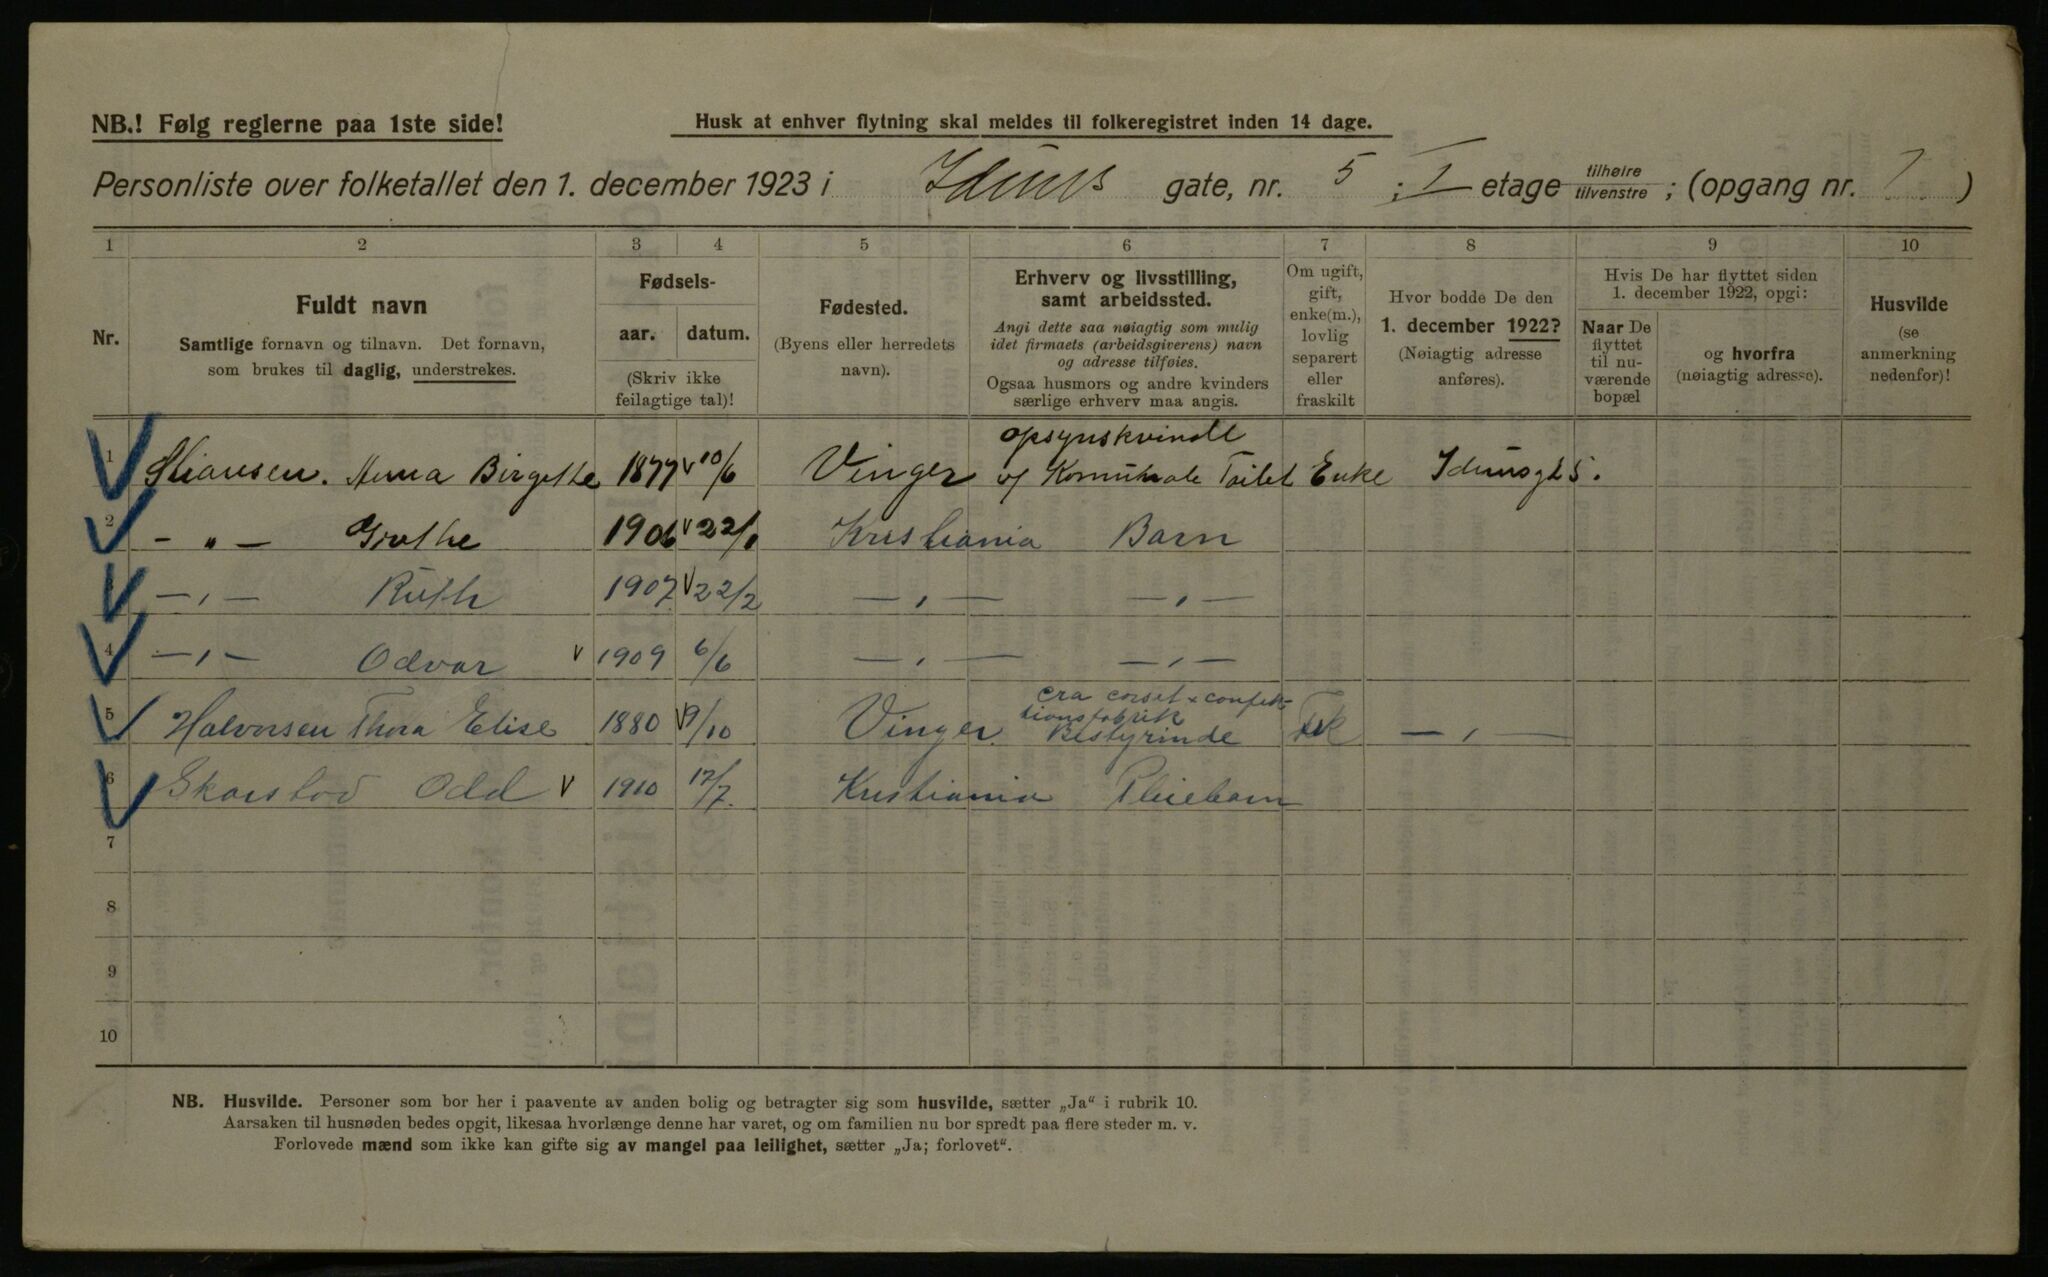 NB.! Følg reglerne paa 1ste side!
Husk at enhver flytning skal meldes til folkeregistret inden 14 dage.
Personliste over folketallet den 1. december 1923 i Iduns gate, nr. 5 ; I etage tilhøire tilvenstre ; (opgang nr. )
1 2 3 4 5 6 7 8 9 10
Nr.
Fuldt navn
Samtlige fornavn og tilnavn. Det fornavn,
som brukes til daglig, understrekes.
Fødsels-
aar. datum.
(Skriv ikke
feilagtige tal)!
Fødested.
(Byens eller herredets
navn).
Erhverv og livsstilling,
samt arbeidssted.
Angi dette saa nøiagtig som mulig
idet firmaets (arbeidsgiverens) navn
og adresse tilføies.
Ogsaa husmors og andre kvinders
særlige erhverv maa angis.
Om ugift,
gift,
enke(m.),
lovlig
separert
eller
fraskilt
Hvor bodde De den
1. december 1922?
(Nøiagtig adresse
anføres).
Hvis De har flyttet siden
1. december 1922, opgi:
Naar De
flyttet
til nu-
værende
bopæl
og hvorfra
(nøiagtig adresse).
Husvilde
(se
anmerkning
nedenfor)!
opsynskvinde
1 Anna Birgethe 1877 10/6 Vinger Enke Idunsgt 5.
2 - „ - Grethe 1906 22/1 Kristiania Barn
3 - „ - Ruth 1907 22/2 - „ - - „ -
4 - „ - Odvar 1909 6/6 - „ - - „ -
cra corset & confek-
tionsfabrik
5 Halvorsen Thora Elise 1880 9/10 Vinger Bestyrinde - „ -
6 Odd 1910 17/7. Kristiania Pleiebarn
7
8
9
10
NB. Husvilde. Personer som bor her i paavente av anden bolig og betragter sig som husvilde, sætter „Ja" i rubrik 10.
Aarsaken til husnøden bedes opgit, likesaa hvorlænge denne har varet, og om familien nu bor spredt paa flere steder m. v.
Forlovede mænd som ikke kan gifte sig av mangel paa leilighet, sætter „Ja; forlovet".